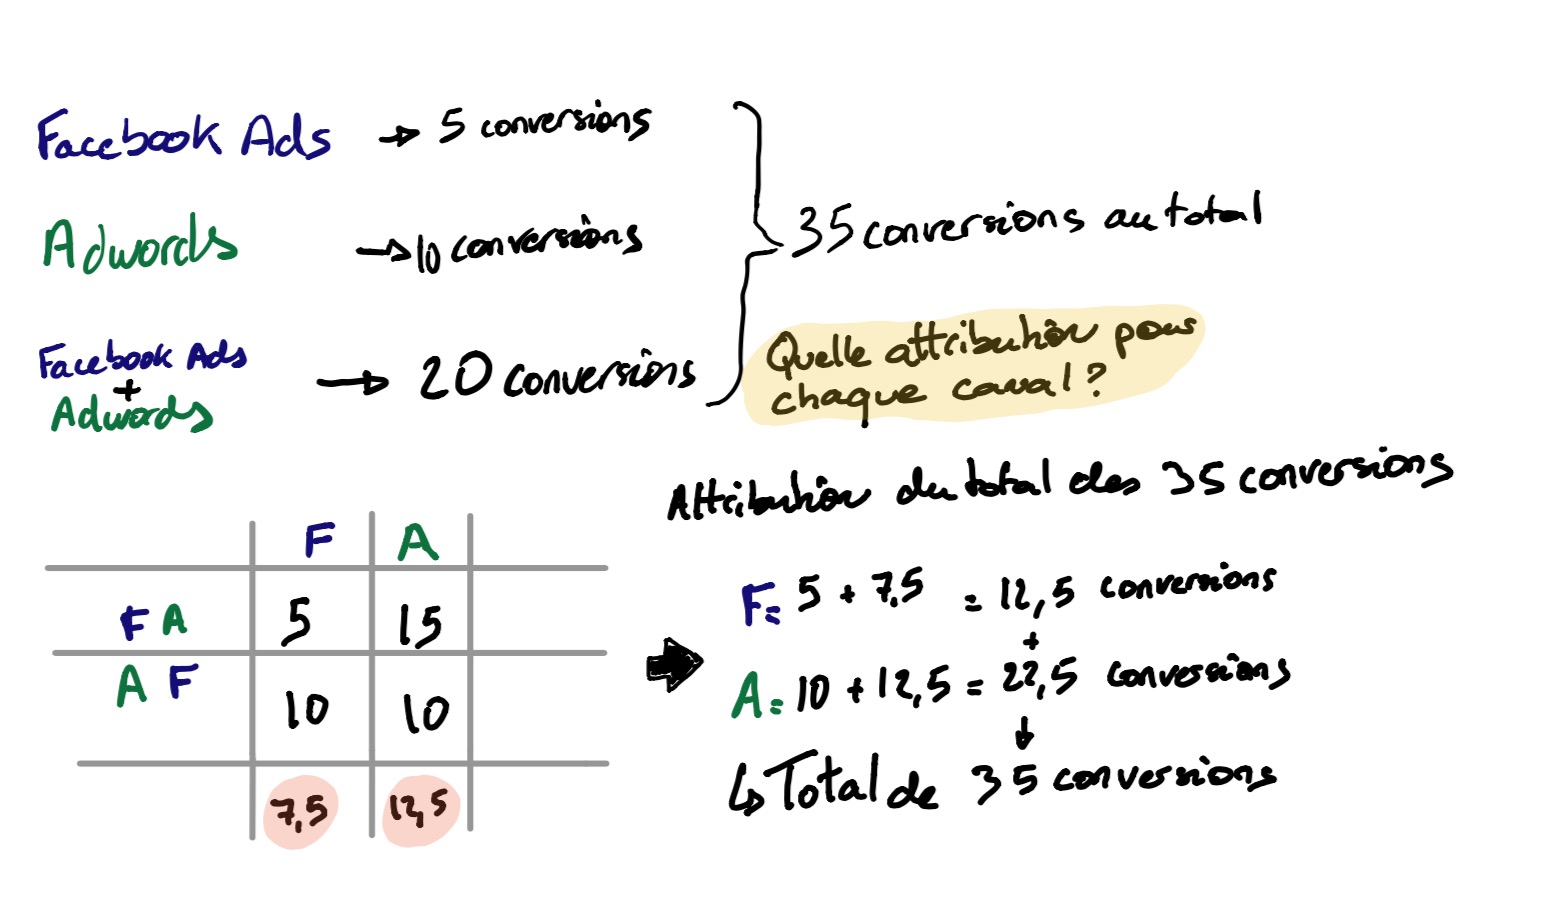 Facebook Ads → 5 conversions
Adwords → 10 conversions
35 conversions au total
Facebook Ads
+
Adwords
→ 20 conversions
Quelle attribution pour
chaque canal ?
Attribution du total des 35 conversions
F A
F A 5 15
A F 10 10
7,5 12,5
F= 5 + 7,5 = 12,5 conversions
+
A= 10 + 12,5 = 22,5 conversions
↓
↳ Total de 35 conversions